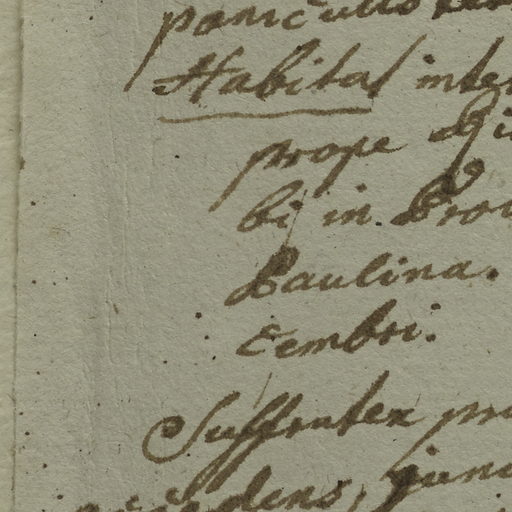 paniculis
Habitat inter
prope
bij in Prov
Paulina.
cembri.
Suffrutex pro
dens, juni